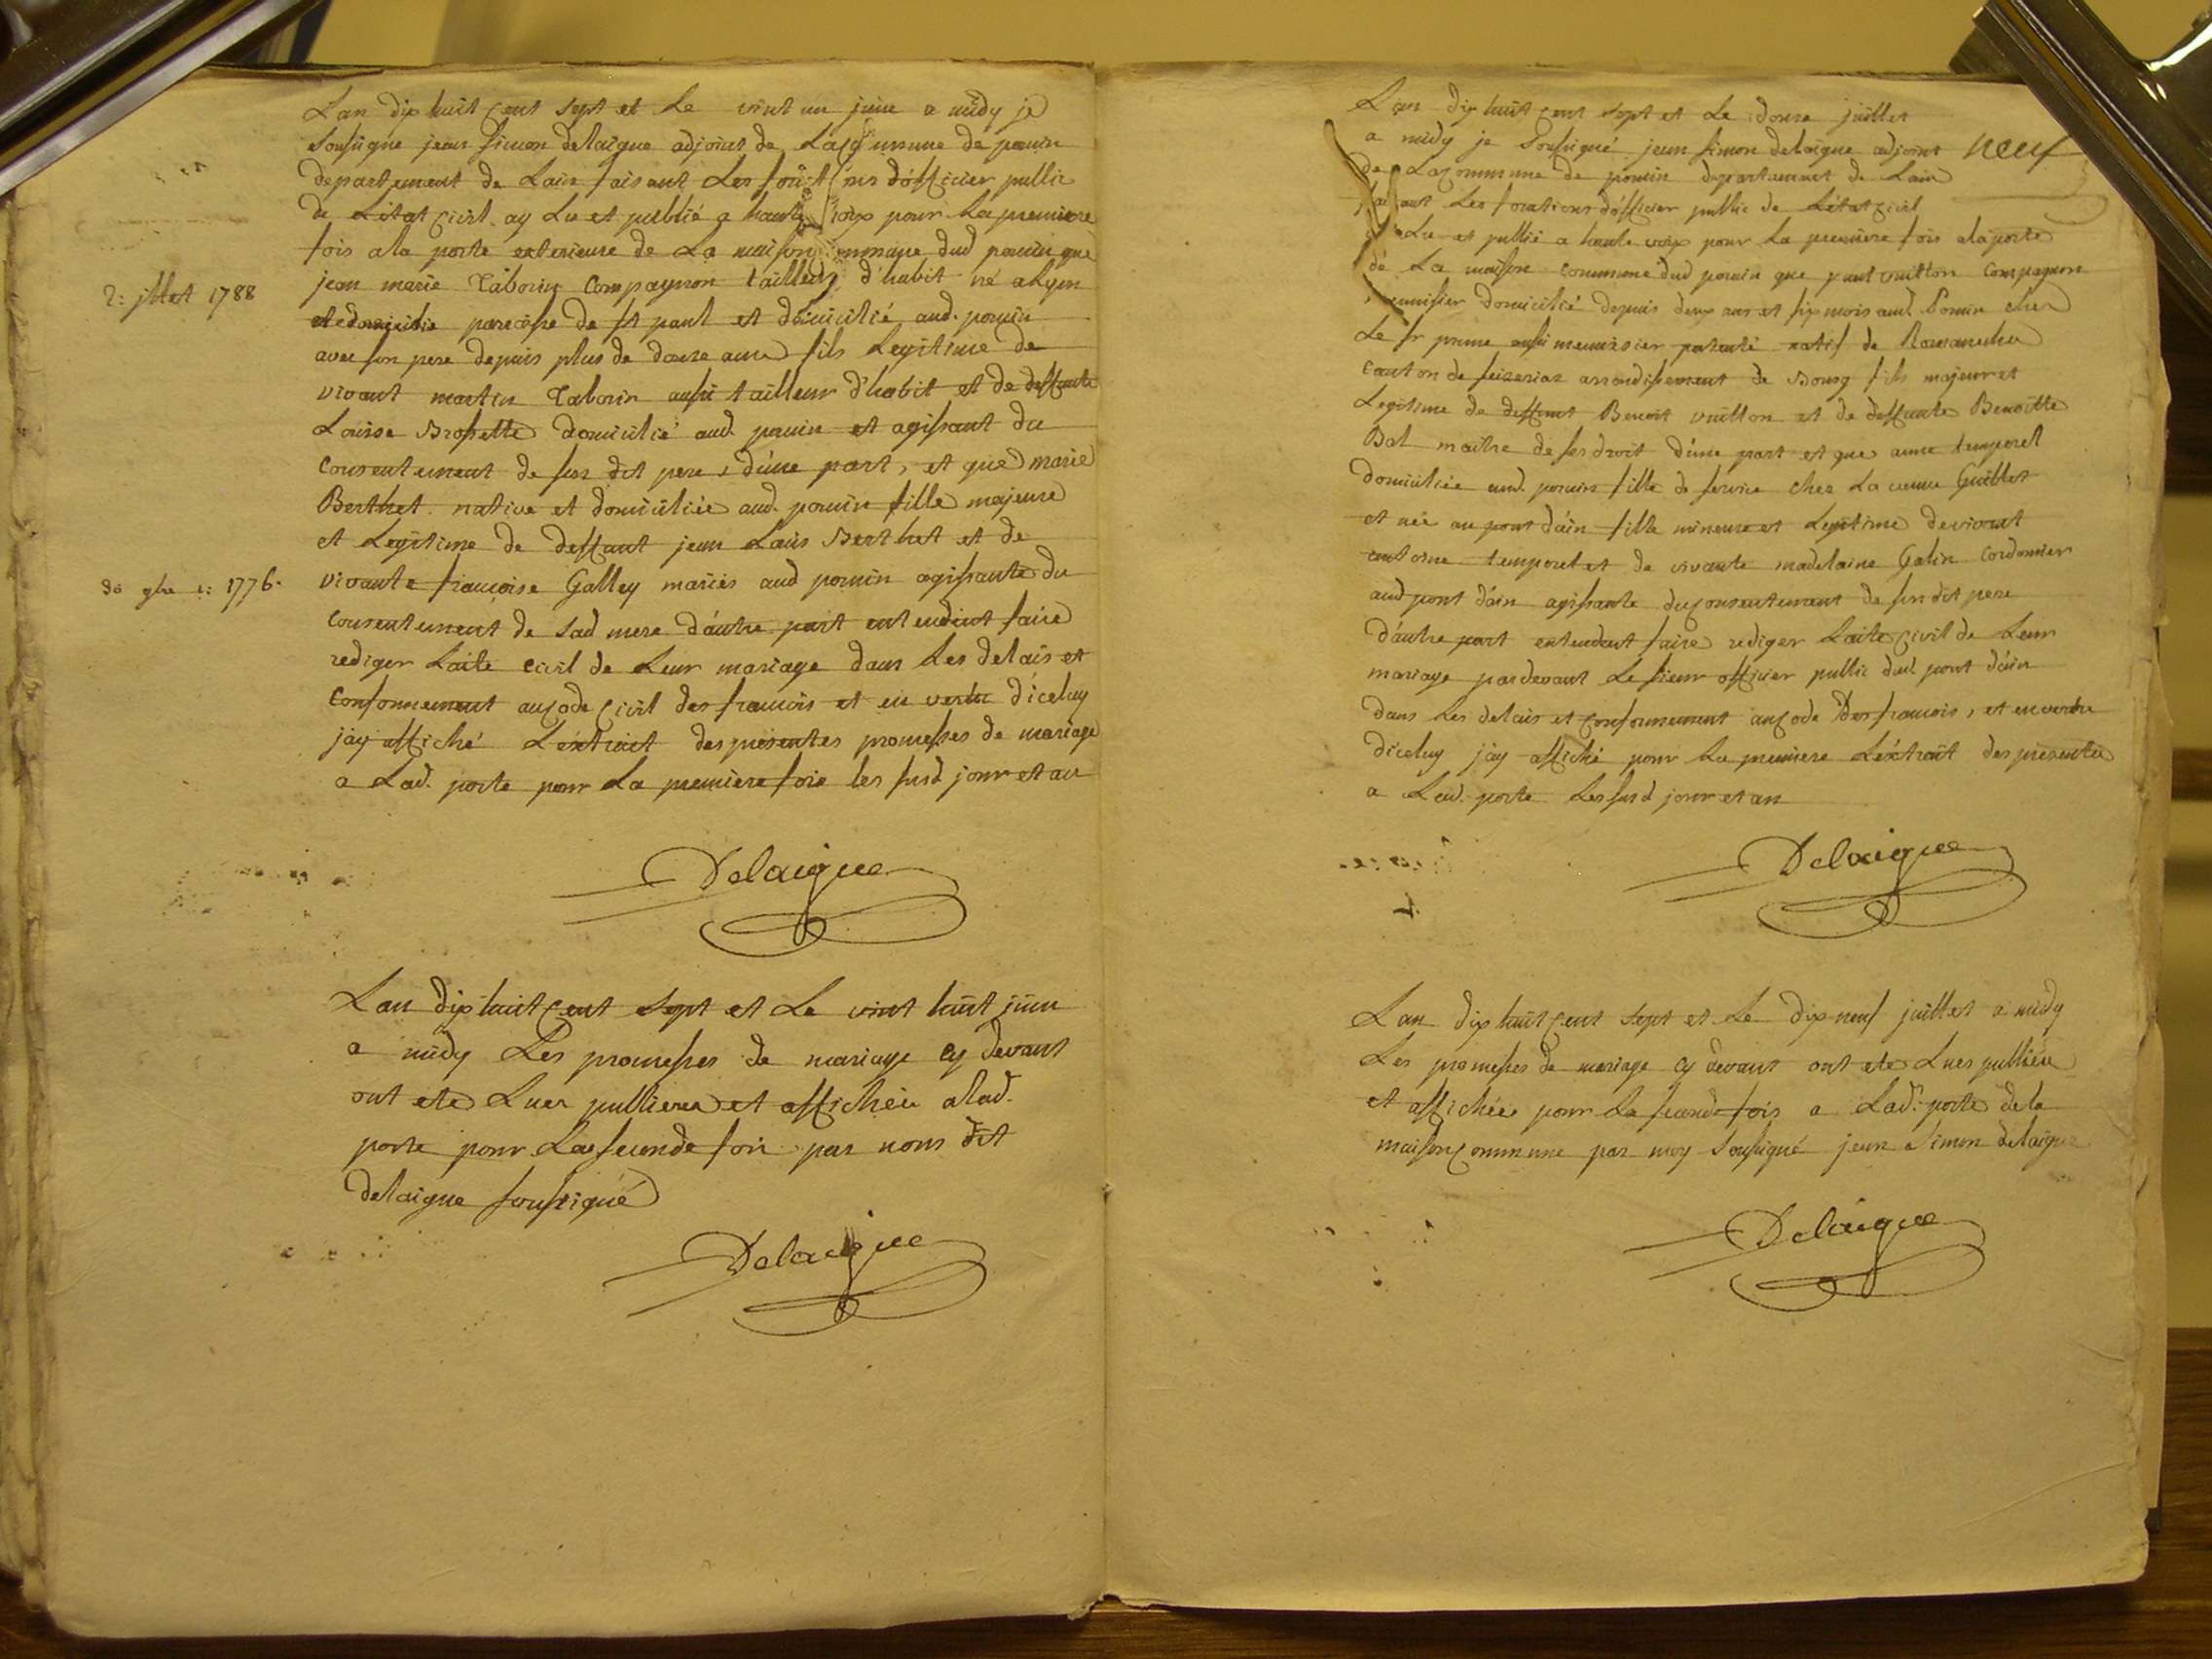 Lan dix huit cent sept et Le vint un juin a midy je
soussigne jean simon delaigue adjoint de La commune de poncin
departement de Lain faisant Les fonctions d'officier public
de L'état civil ay Lu et publié a haute voix pour La premiere
fois a la porte exterieure de La maison commune dud poncin que
jean marie Taborin Compagnon tailleur d'habit né a Lyon
2: jllet 1788
paroisse de st paul et domicilié aud. poncin
avec son pere depuis plus de douze ans fils Legitime de
vivant martin Taborin aussi tailleur d'habit et de deffunte
Louise Brossette domicilié aud. poncin et agissant du
consentement de son dit pere, d'une part, et que marie
Berthet native et domiciliée aud. poncin fille majeure
et Legitime de deffunt jean Louis Berthet et de
vivante francoise Galley mariés aud poncin agissante du
1776.
consentement de sad mere d'autre part entendent faire
rediger Laite civil de Leur mariage dans Les delais et
conformement au code civil des francois et en vertu d'iceluy
j'ay affiché L'extrait des presentes promesses de mariage
a Lad. porte pour La premiere fois les susd jour et an
Delaigue
Lan dix huit cent sept et Le vint huit juin
a midy Les promesses de mariage cy devant
ont ete Lues publiees et affichée a lad.
porte pour La seconde fois par nous dit
delaigue soussigné
Delaigue
neuf
Lan dix huit cent sept et Le douze juillet
a midy je soussigné jean simon delaigue adjoint
de La commune de poncin departement de Lain
faisant Les fonctions d'officier public de L'état civil
ay Lu et publié a haute voix pour La premiere fois a la porte
de La maison commune dud poncin que paul vuitton Compagnon
menuisier domicilié depuis deux ans et six mois aud. Poncin chez
Le sr prime aussi menuisier patenté natif de
canton de arrondissement de Bourg fils majeur et
Legitime de deffunt Benoit vuitton et de deffunte Benoitte
Bal maitre de ses droit d'une part et que anne temporel
domiciliée aud. poncin fille de service chez La veuve Guillot
et née au pont d'ain fille mineure et Legitime de vivant
antoine temporel et de vivante madelaine Galin Cordonnier
aud pont d'ain agissante du consentement de son dit pere
d'autre part entendent faire rediger Laite civil de Leur
mariage pardevant Le sieur officier public dud. pont d'ain
dans Les delais et conformement au code des francois, et en vertu
d'iceluy j'ay affiché pour La premiere L'extrait des presentes
a Lad. porte Les susd jour et an
Delaigue
Lan dix huit cent sept et Le dix neuf juillet a midy
Les promesses de mariage cy devant ont ete Lues publiée
et affichées pour La seconde fois a Lad. porte de la
maison commune par moy soussigné jean Simon delaigue
Delaigue